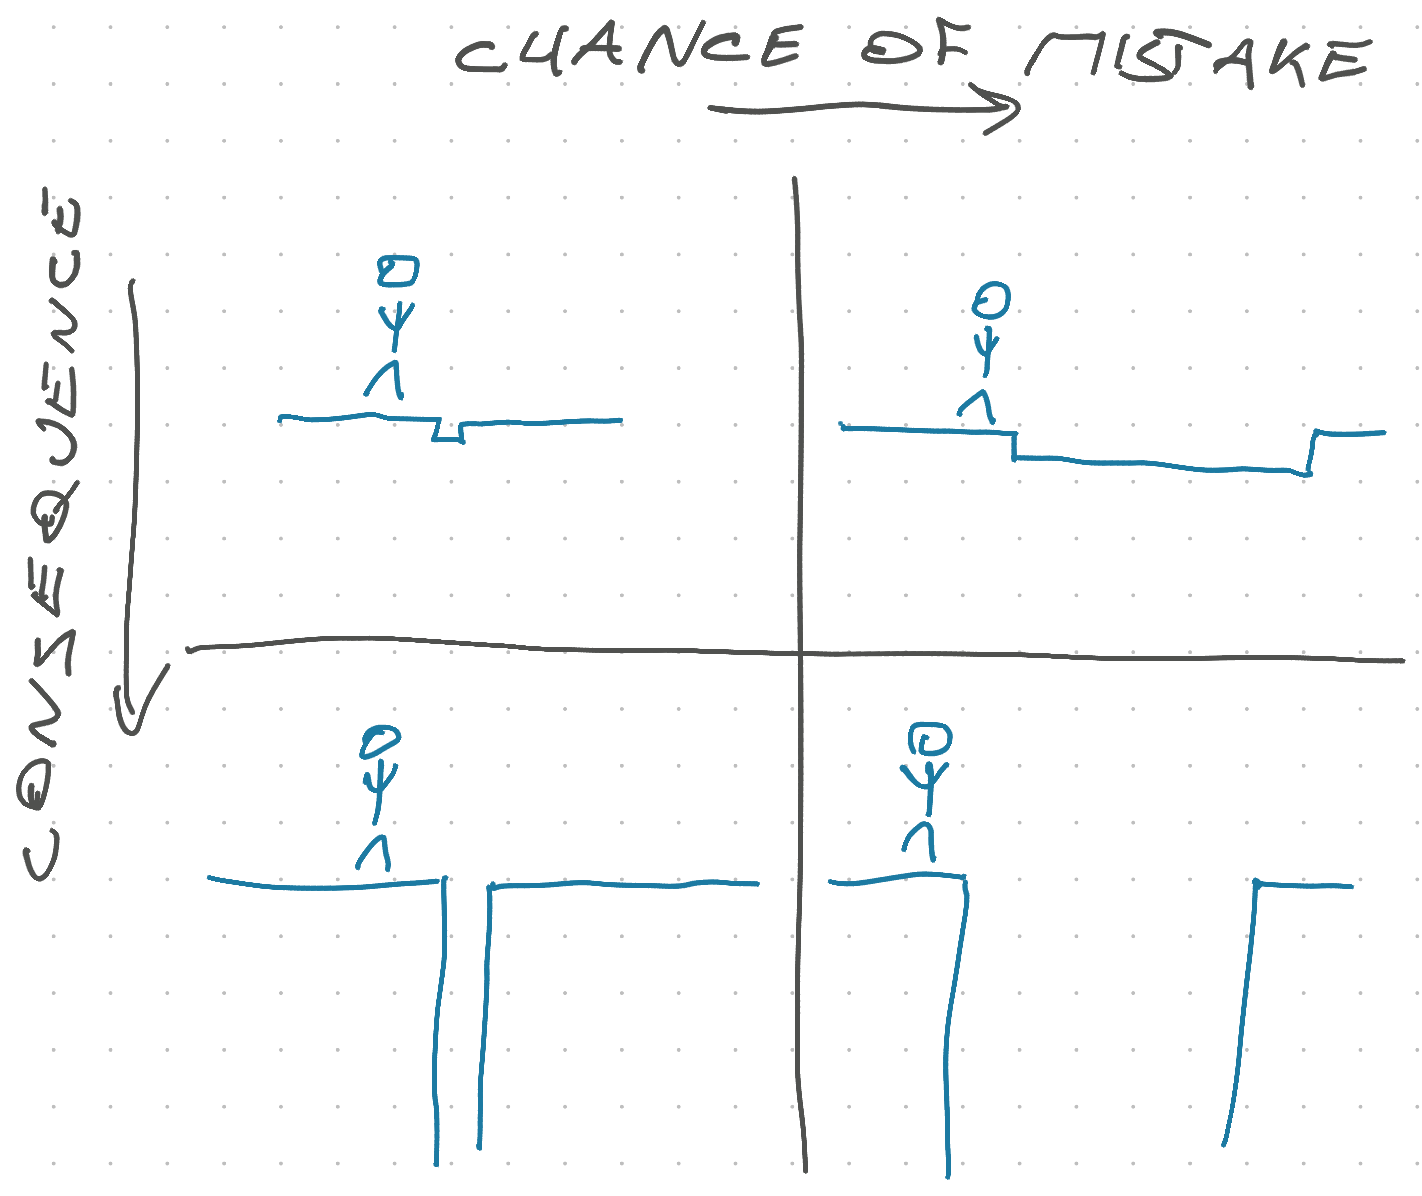 CHANCE OF MISTAKE
CONSEQUENCE